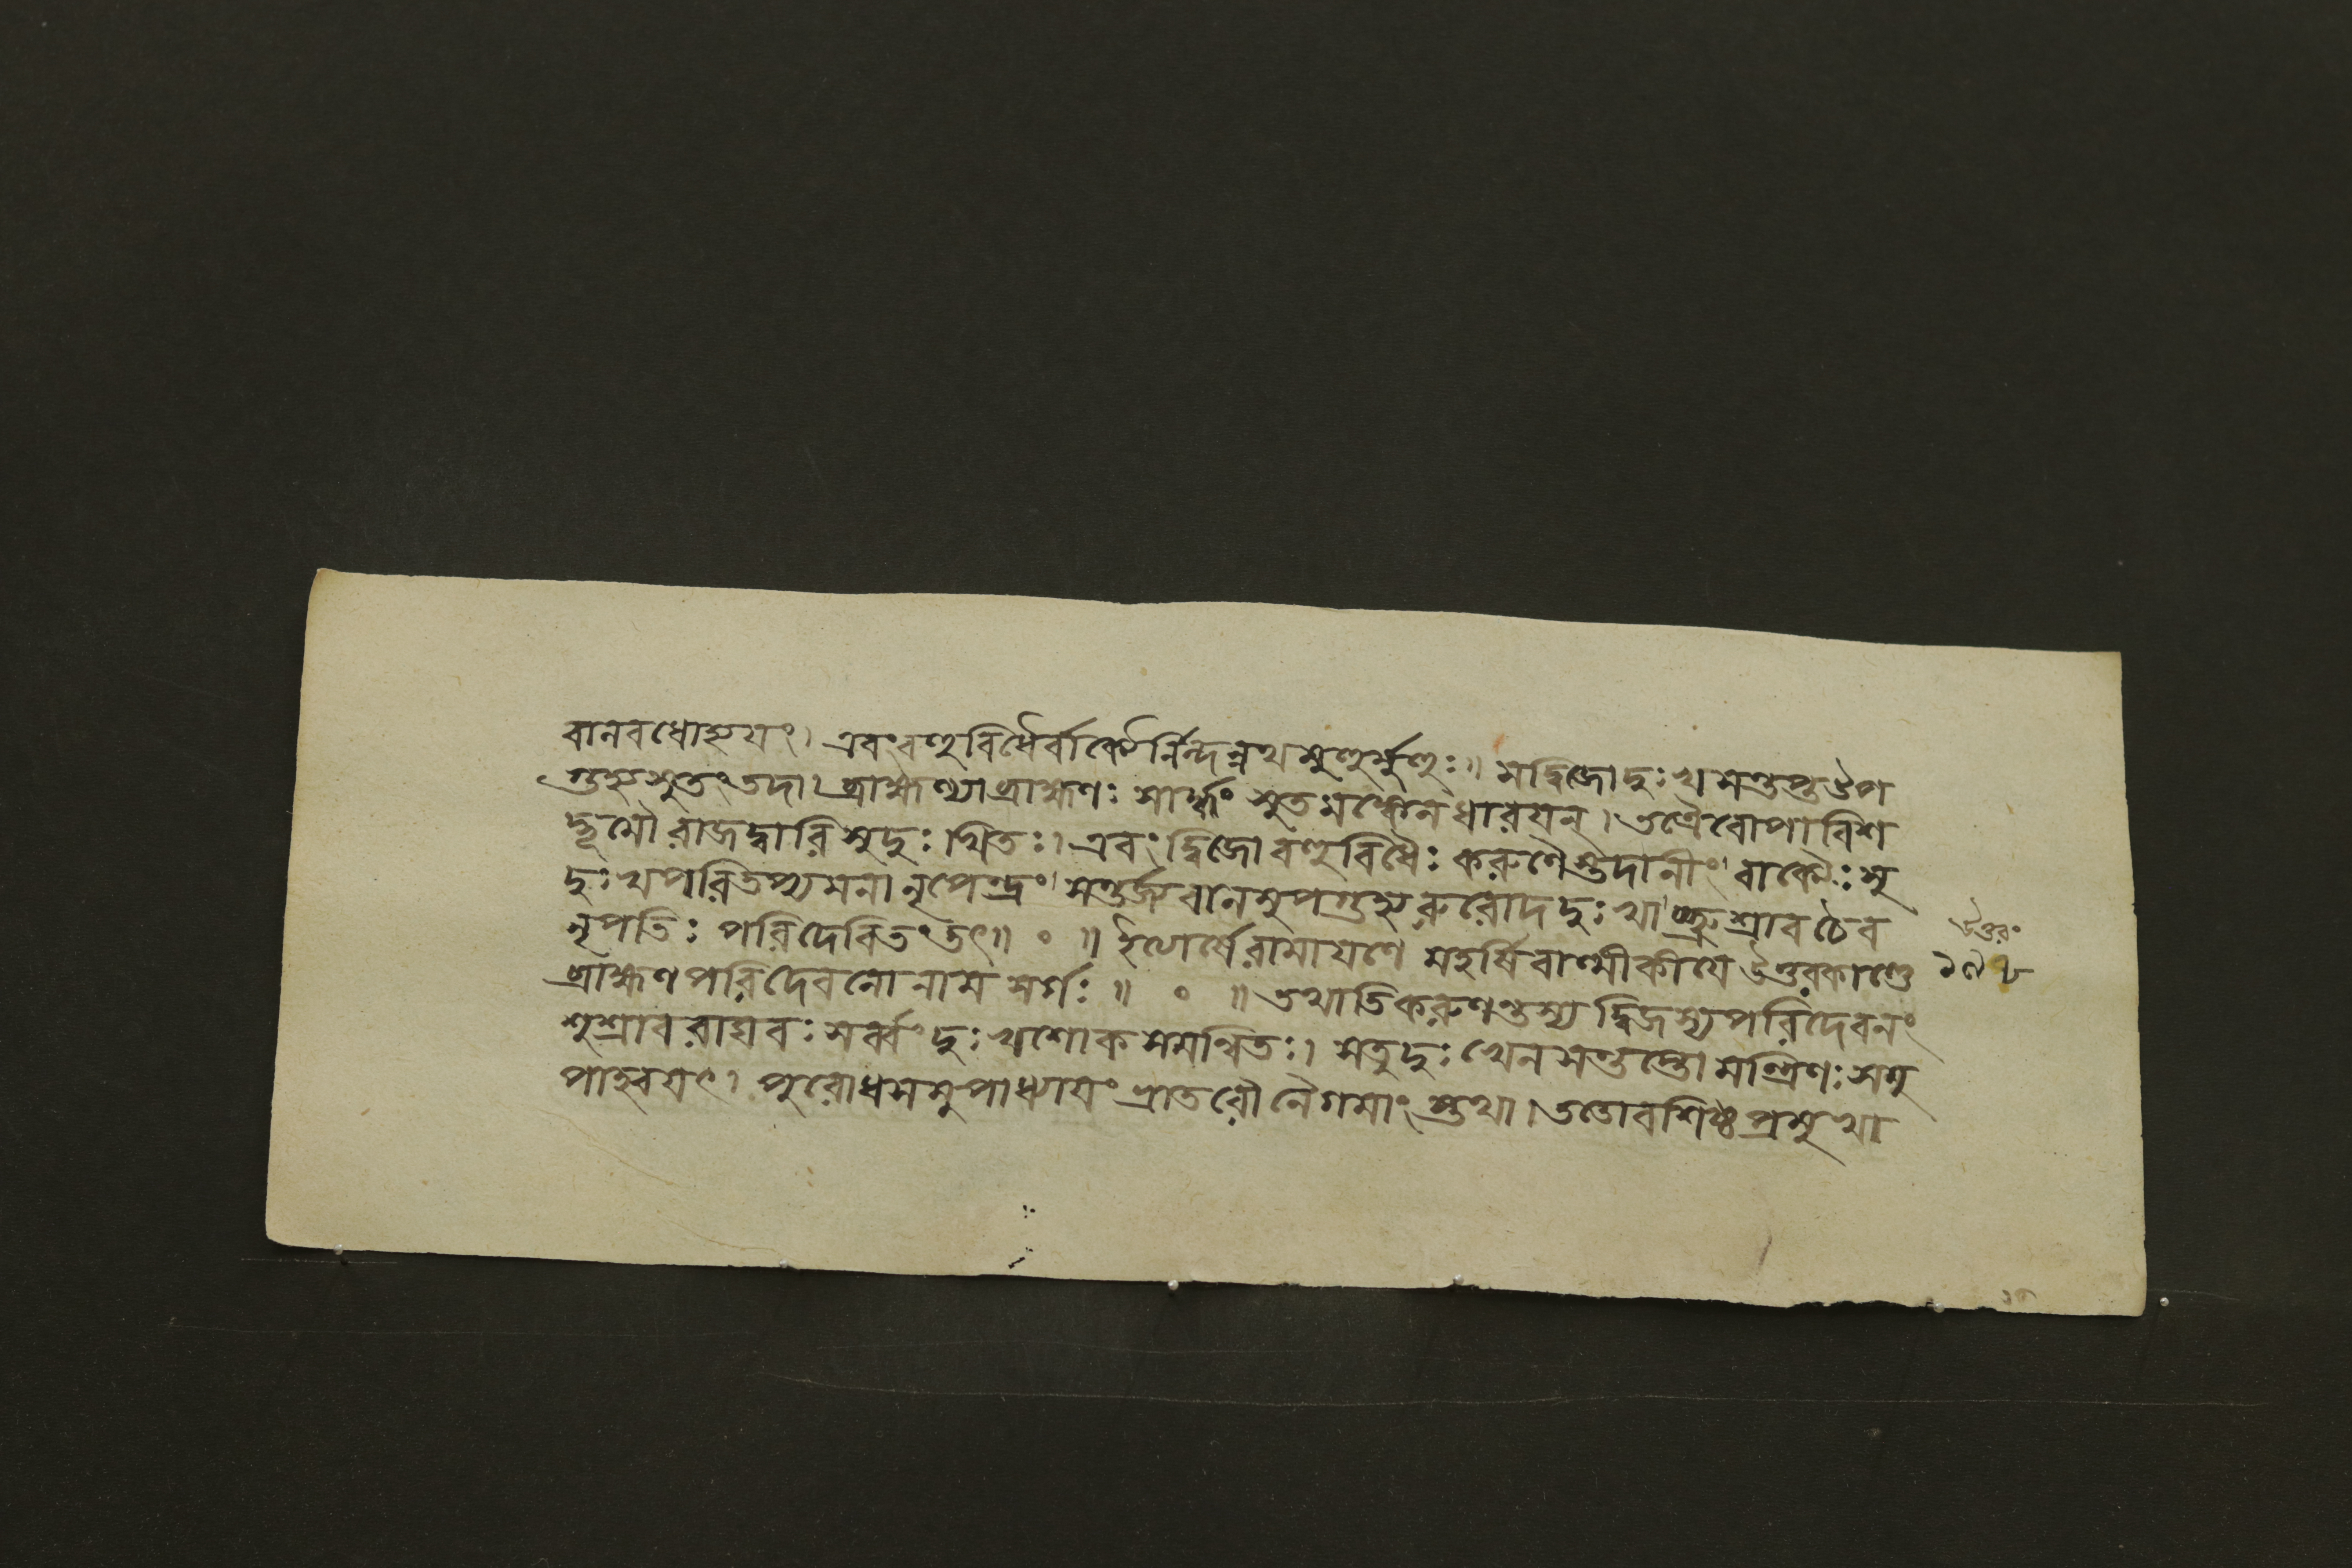 বানবধোহ্যয়ং। এবংবহুবিধৈর্বাক্যৈর্নিন্দন্নথমুহুর্মুহুঃ॥ সদ্বিজোদুঃখসন্তপ্তউপ
গুহ্যসুতংতদা। ব্রাহ্মণ্যাব্রাহ্মণঃ সার্দ্ধং সুতমঙ্কেনধারয়ন্। তত্রৈবোপাবিশ
দ্ভূমৌরাজদ্বারিসুদুঃখিতঃ। এবংদ্বিজোবহুবিধৈঃ করুণৈস্তদানীং বাক্যৈঃসু
দুঃখপরিতপ্যমনানৃপেন্দ্রং সন্তর্জ্জবানসুপগুহ্যরুরোদদুঃখাচ্ছুশ্রাবচৈব
নৃপতিঃ পরিদেবিতংতৎ॥ ० ॥ ইত্যার্ষেরামায়ণে মহর্ষিবাল্মীকীয়েউত্তরকাণ্ডে
ব্রাহ্মণপরিদেবনোনাম সর্গঃ॥ ० ॥ তথাতিকরুণন্তস্য দ্বিজস্যপরিদেবনং
শুশ্রাবরাঘবঃ সর্ব্বং দুঃখশোকসমন্বিতঃ। সতুদুঃখেনসন্তপ্তোমন্ত্রিণঃ সমু
পাহ্বয়ৎ। পুরোধসমুপাধ্যায়ং ভ্রাতরৌনৈগমাংস্তথা। ততোবশিষ্ঠপ্রমুখা
উত্তরং
১৯৮